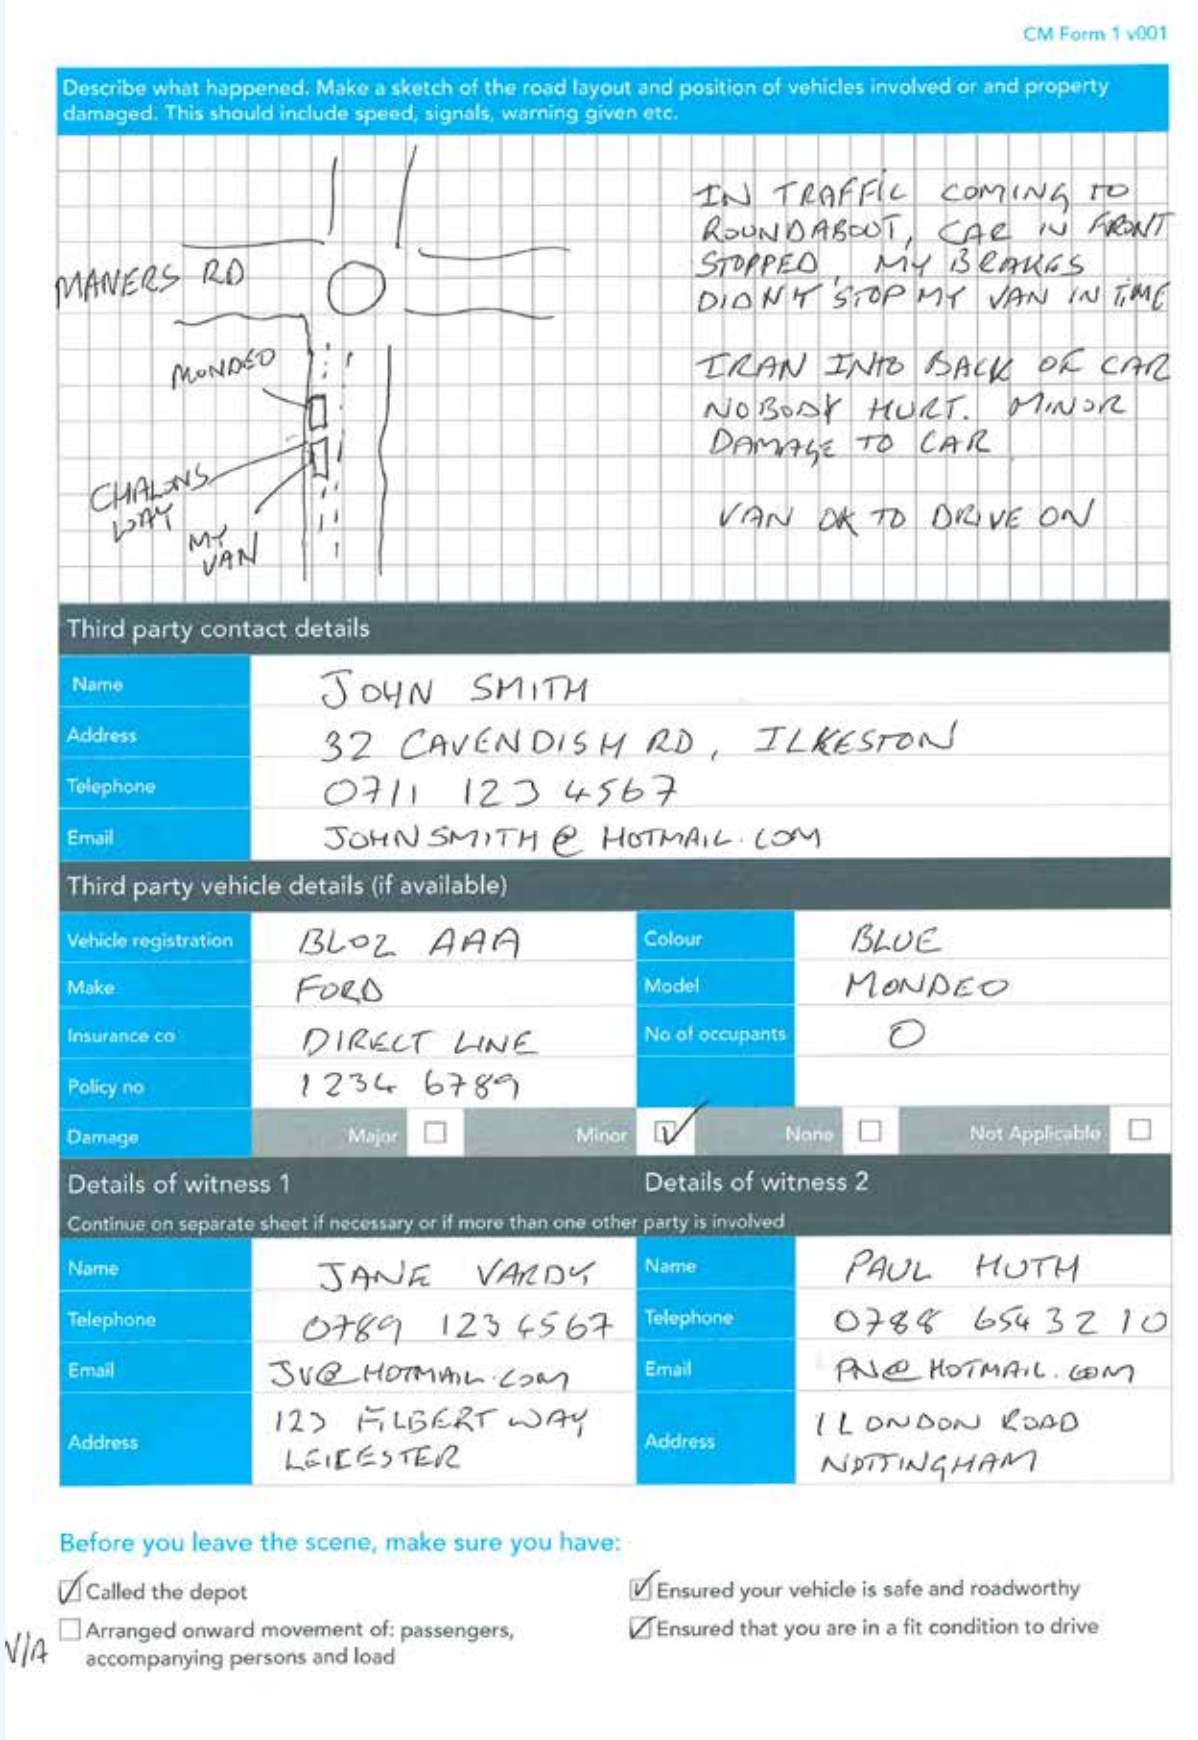 CM Form 1 v001
Describe what happened. Make a sketch of the road layout and position of vehicles involved or and property
damaged. This should include speed, signals, warning given etc.
IN TRAFFIC COMING TO
ROUNDABOUT, CAR IN FRONT
STOPPED, MY BRAKES
DIDN'T STOP MY VAN IN TIME
I RAN INTO BACK OF CAR
NOBODY HURT. MINOR
DAMAGE TO CAR
VAN OK TO DRIVE ON
MANERS RD
MONDEO
CHALONS
WAY
MY
VAN
Third party contact details
Name JOHN SMITH
Address 32 CAVENDISH RD, ILKESTON
Telephone 0711 123 4567
Email JOHNSMITH@HOTMAIL.COM
Third party vehicle details (if available)
Vehicle registration BL02 AAA Colour BLUE
Make FORD Model MONDEO
Insurance co DIRECT LINE No of occupants 0
Policy no 1234 6789
Damage Major Minor None Not Applicable
Details of witness 1 Details of witness 2
Continue on separate sheet if necessary or if more than one other party is involved
Name JANE VARDY Name PAUL HUTH
Telephone 0789 123 4567 Telephone 0788 6543210
Email JV@HOTMAIL.COM Email @HOTMAIL.COM
Address 123 FILBERT WAY
LEICESTER
Address 1 LONDON ROAD
NOTTINGHAM
Before you leave the scene, make sure you have:
Called the depot Ensured your vehicle is safe and roadworthy
N/A Arranged onward movement of: passengers,
accompanying persons and load
Ensured that you are in a fit condition to drive